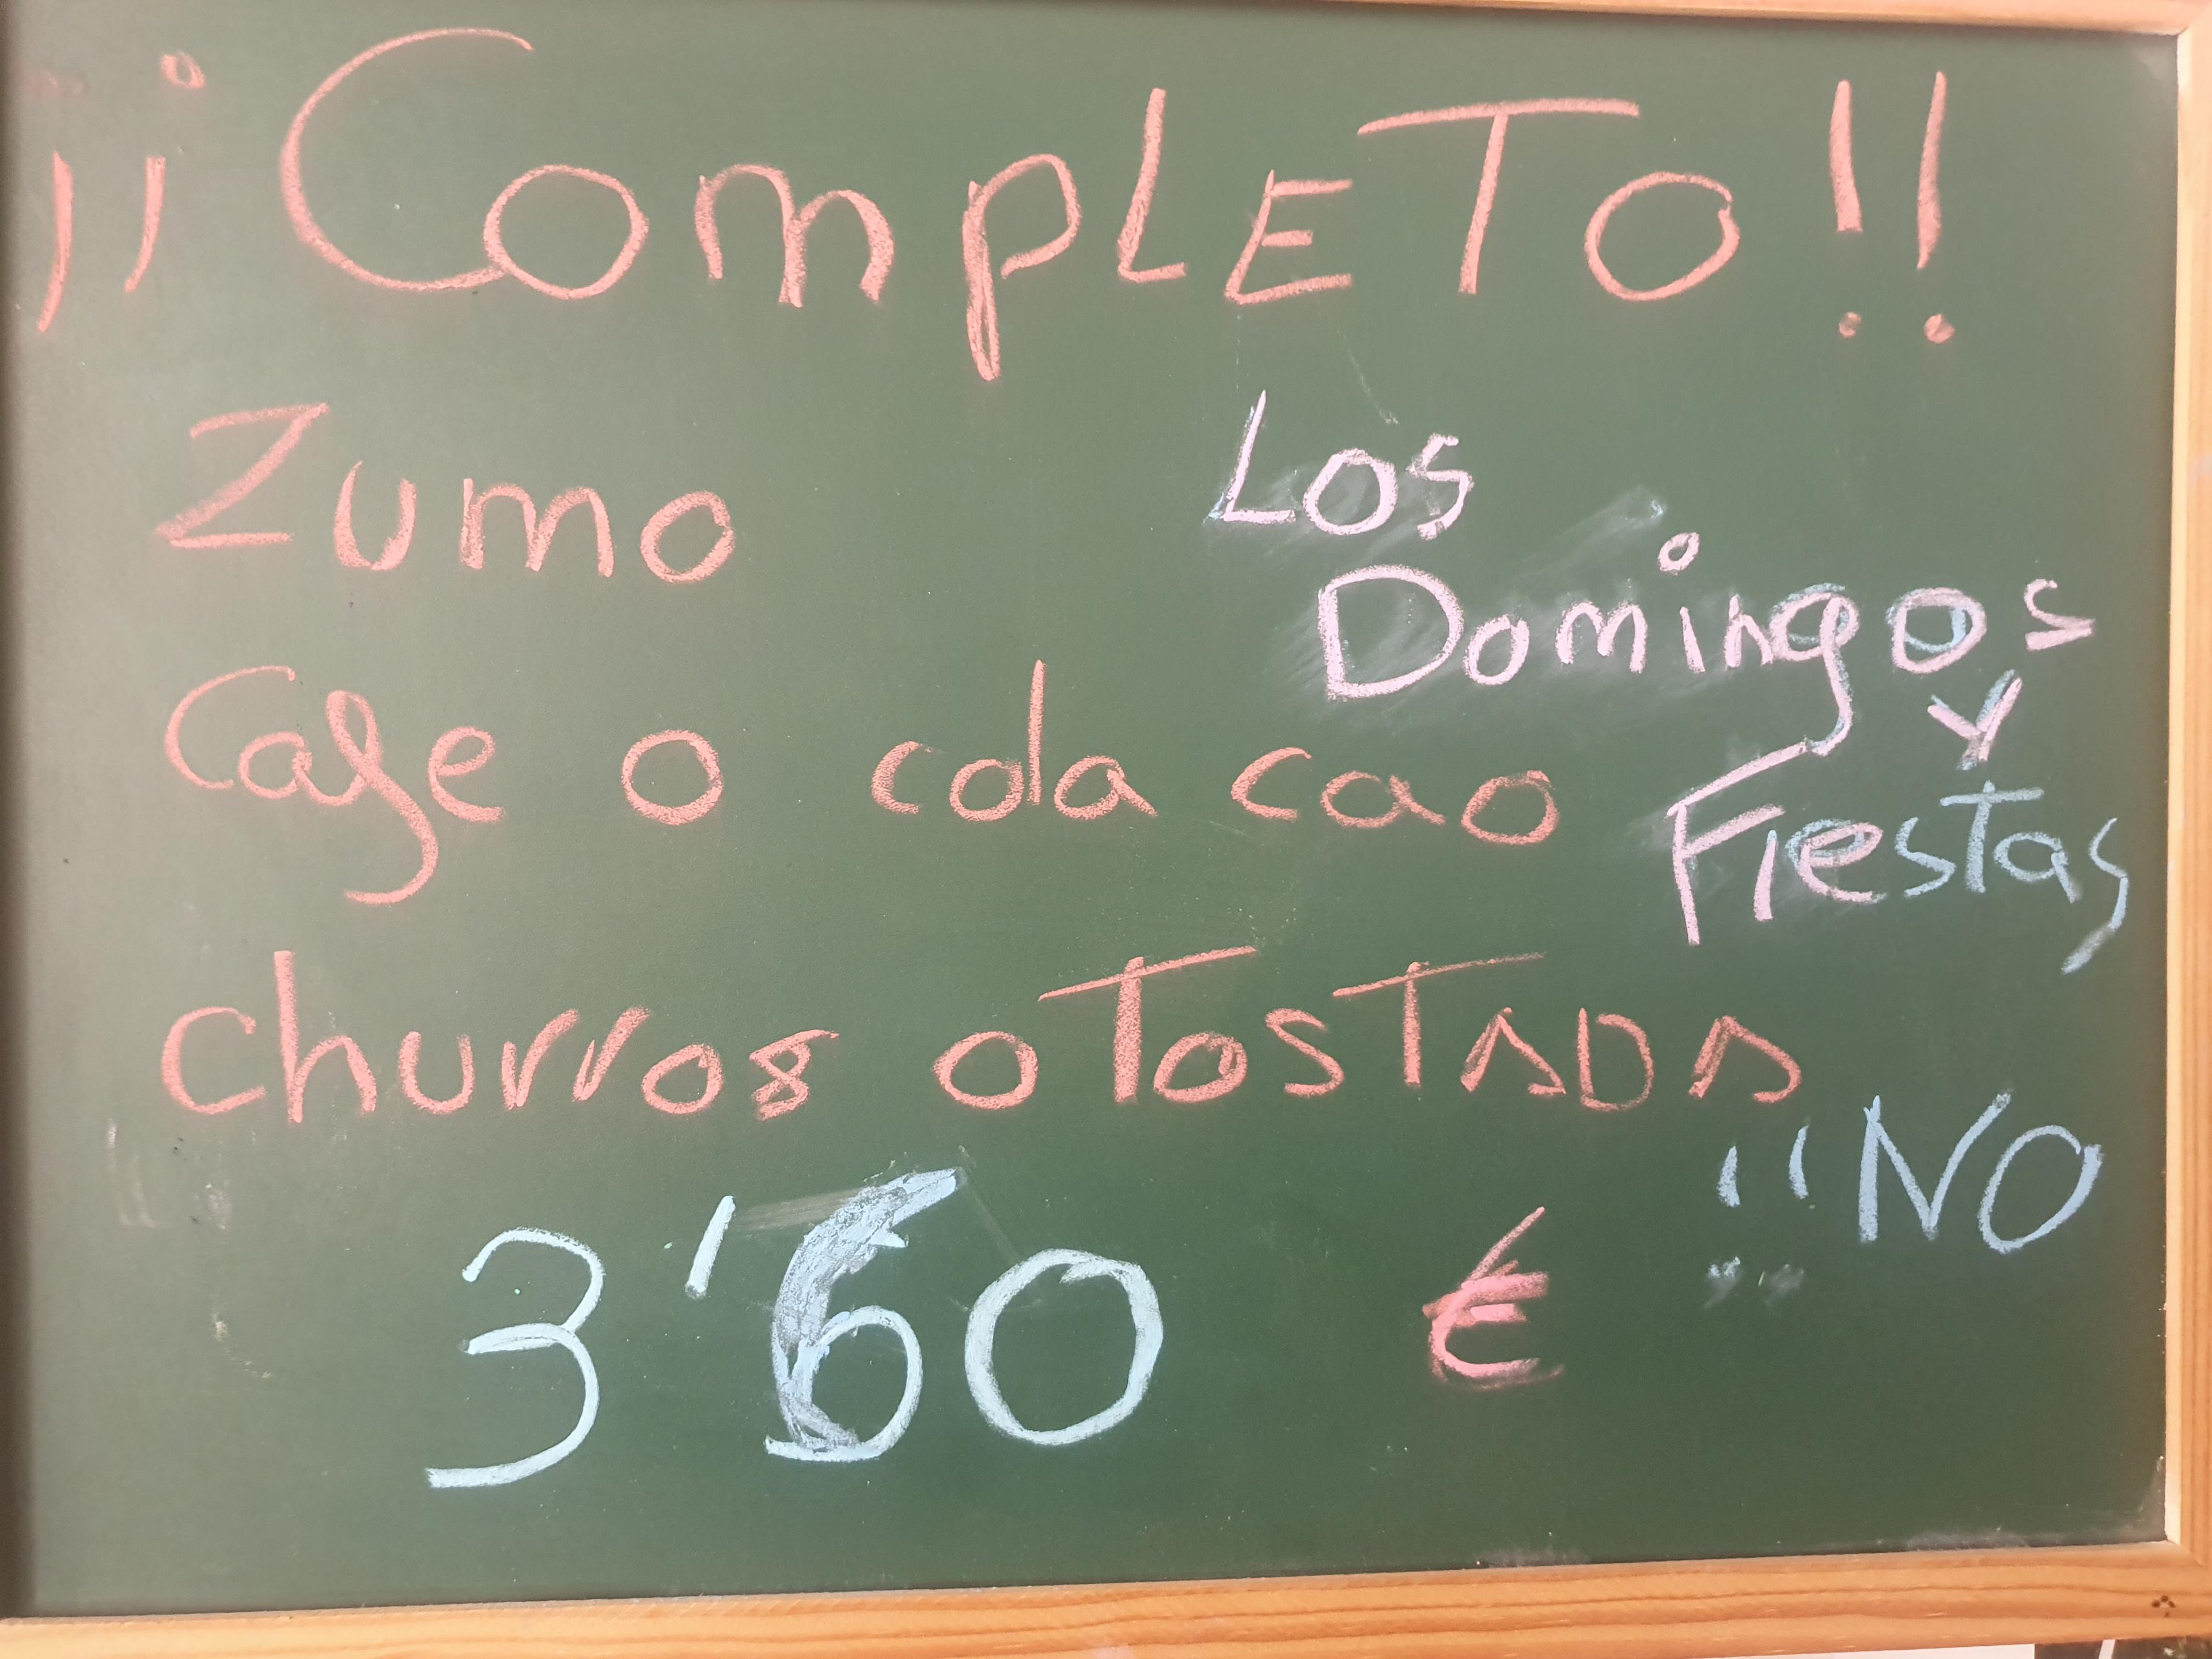 ¡¡Completo!!
Zumo
Cafe o cola cao
churros o Tostada
3'60 €
Los
Domingos
y
Fiestas
!!NO